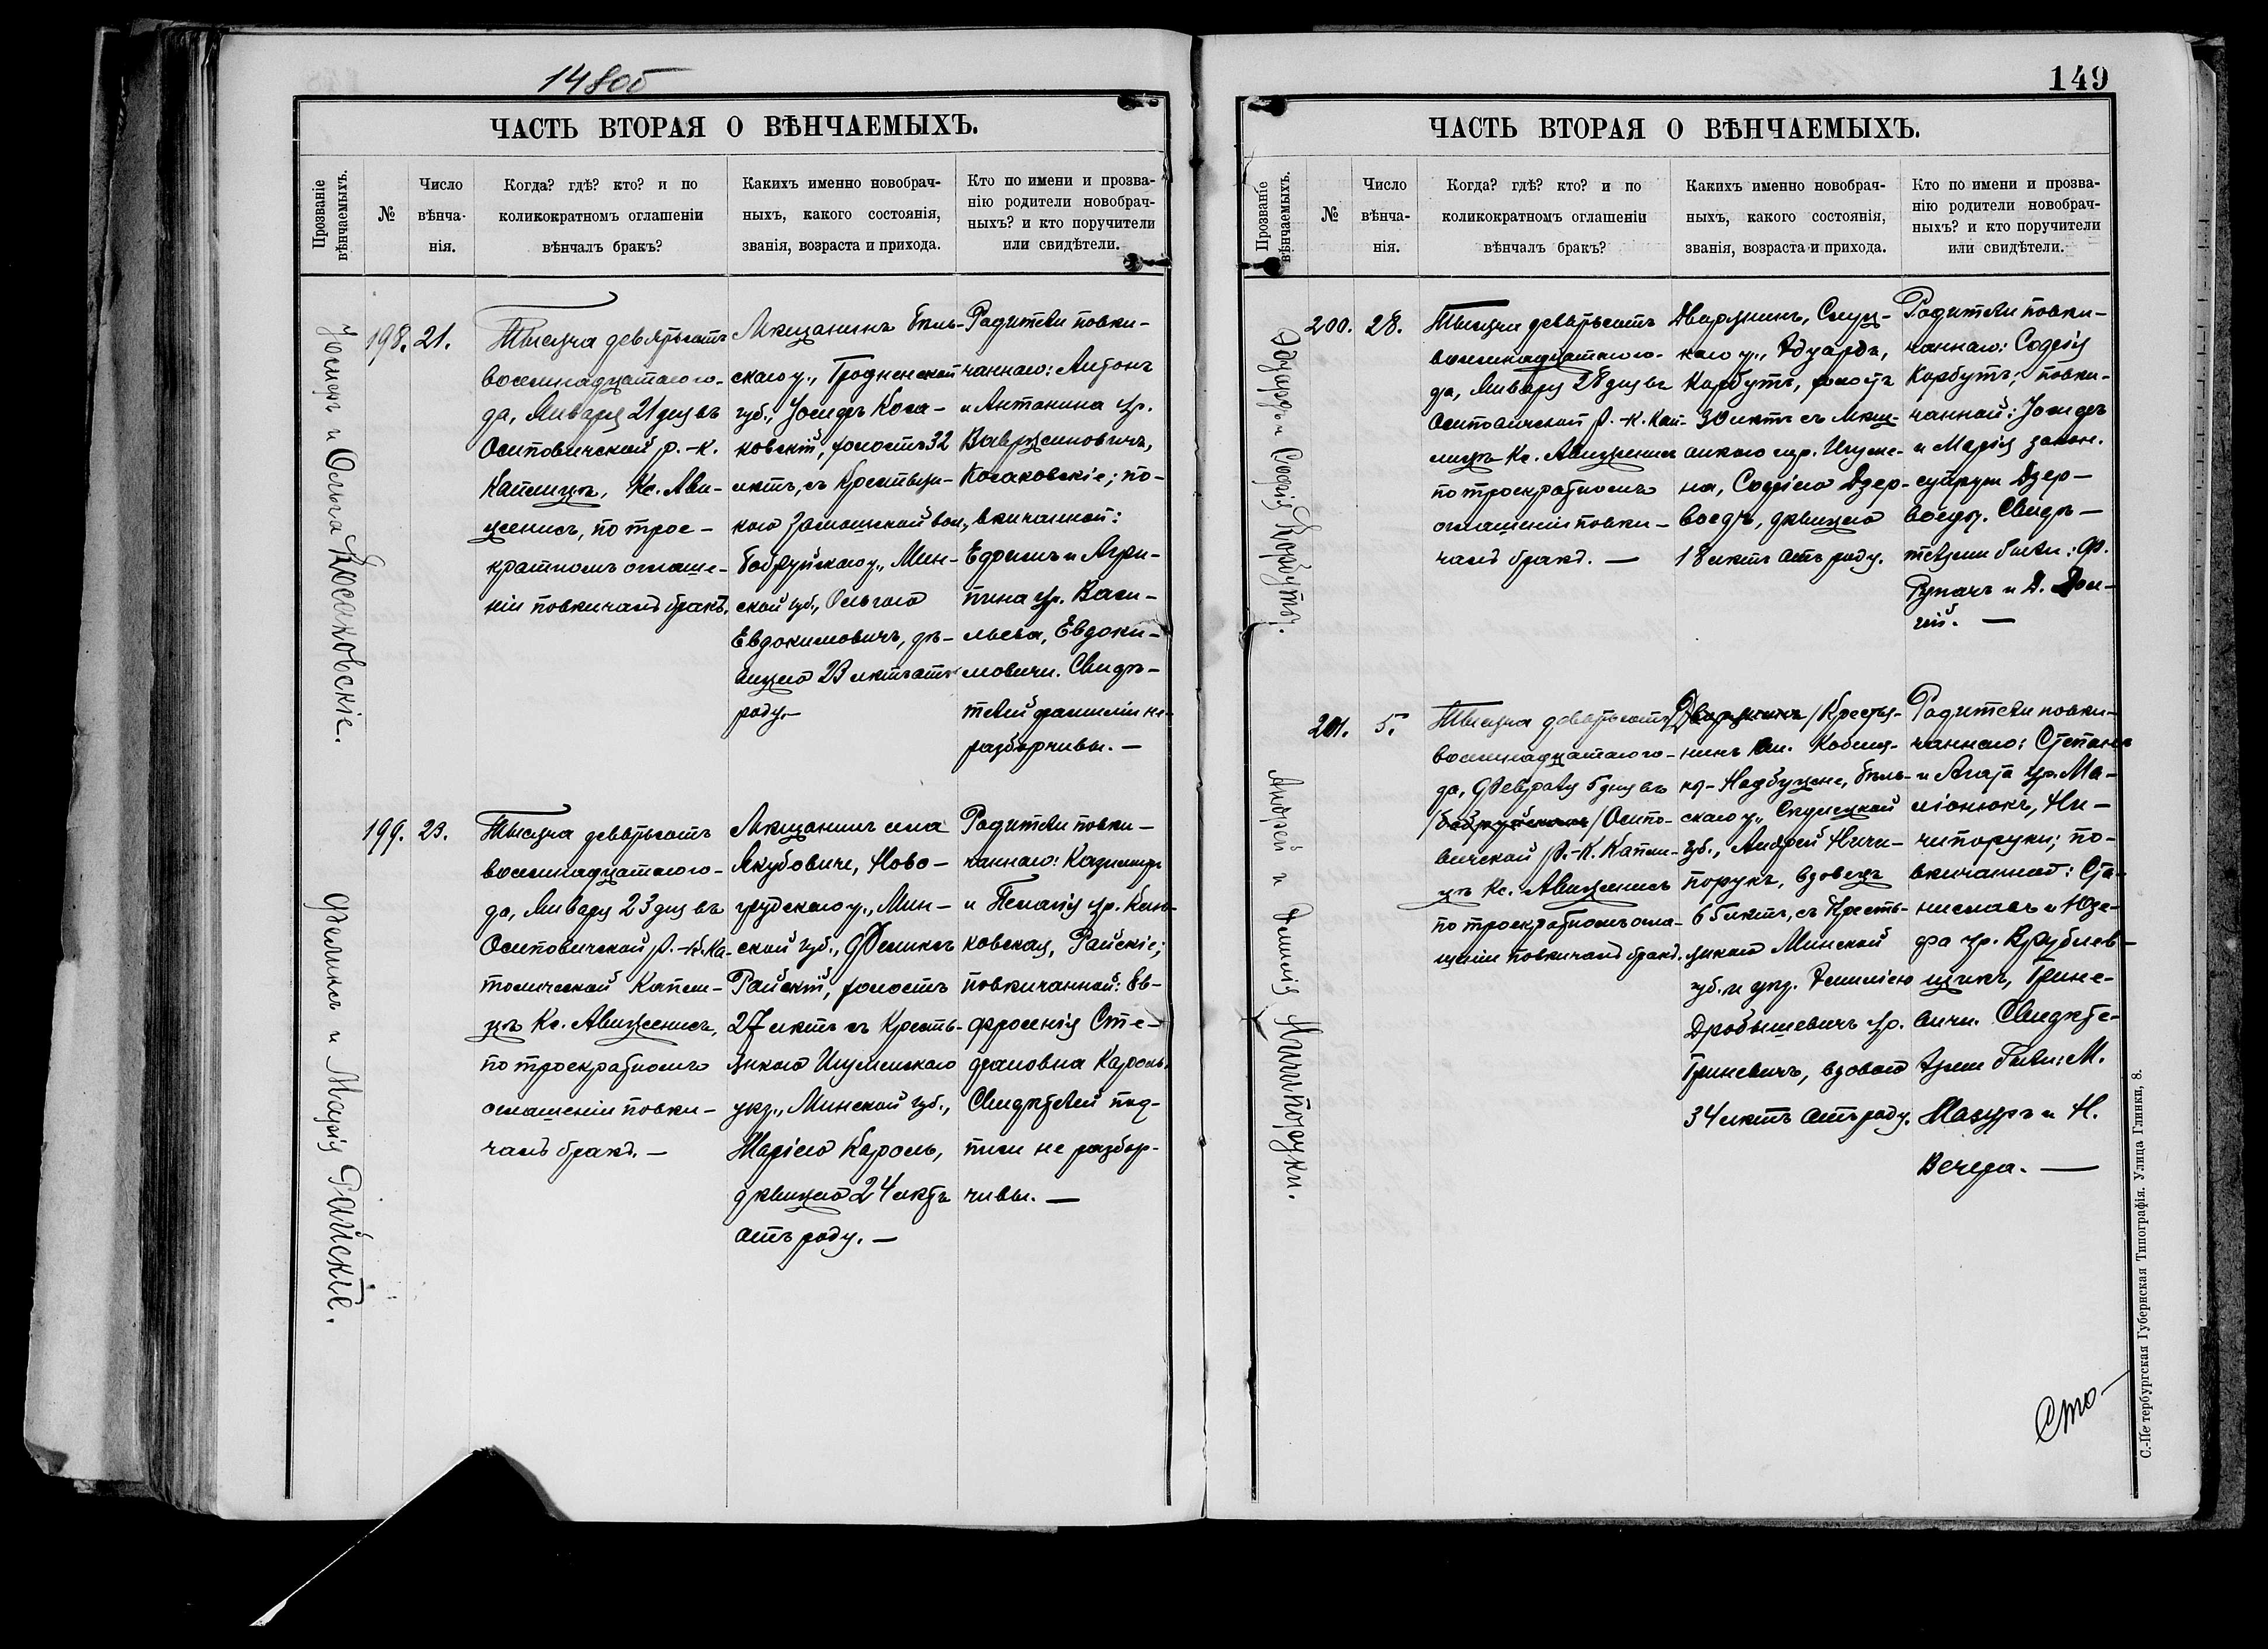 148об
ЧАСТЬ ВТОРАЯ О ВѢНЧАЕМЫХЪ.
Прозваніе
вѣнчаемыхъ.
№
Число
вѣнча-
нія.
Когда? гдѣ? кто? и по
коликократномъ оглашеніи
вѣнчалъ бракъ?
Какихъ именно новобрач-
ныхъ, какого состоянія,
званія, возраста и прихода.
Кто по имени и прозва-
нію родители новобрач-
ныхъ? и кто поручители
или свидѣтели.
Іосифъ и Ольга Косаковскіе.
198. 21.
Тысяча девятьсотъ
восемнадцатаго го-
да, Января 21 дня въ
Осиповичской р.-к.
Каплицѣ, Кс. Ави-
женисъ, по трое-
кратномъ оглаше-
ніи повѣнчалъ бракъ.
Мѣщанинъ Бѣль-
скаго у., Гродненской
губ., Іосифъ Коса-
ковскій, холостъ 32
лѣтъ, съ Крестьян-
кою Замошской вол.,
Бобруйскаго у., Мин-
ской губ., Ольгою
Евдокимовичъ, дѣ-
вицею 23 лѣтъ отъ
роду.—
Родители повѣн-
чаннаго: Антонъ
и Антонина ур.
Вавржиновичъ,
Косаковскіе; по-
вѣнчанной:
Ефимъ и Агри-
пина ур. Васи-
льева, Евдоки-
мовичи. Свидѣ-
телей фамиліи не-
разборчивы.—
Феликсъ и Марія Райскіе.
199. 23.
Тысяча девятьсотъ
восемнадцатаго го-
да, Января 23 дня въ
Осиповичской р.-к. Ка-
толической Капли-
цѣ Кс. Авиженисъ,
по троекратномъ
оглашеніи повѣн-
чалъ бракъ.—
Мѣщанинъ села
Якубовиче, Ново-
грудскаго у., Мин-
ской губ., Феликсъ
Райскій, холостъ
27 лѣтъ съ Кресть-
янкою Игуменскаго
уѣз., Минской губ.,
Марією Король,
дѣвицею 24 лѣтъ
отъ роду.—
Родители повѣн-
чаннаго: Казимиръ
и Пелагія ур.
ковская, Райскіе;
повѣнчанной: Ев-
фросенія Сте-
фановна Король.
Свидѣтелей под-
писи не разбор-
чивы.—
149
ЧАСТЬ ВТОРАЯ О ВѢНЧАЕМЫХЪ.
Прозваніе
вѣнчаемыхъ.
№
Число
вѣнча-
нія.
Когда? гдѣ? кто? и по
коликократномъ оглашеніи
вѣнчалъ бракъ?
Какихъ именно новобрач-
ныхъ, какого состоянія,
званія, возраста и прихода.
Кто по имени и прозва-
нію родители новобрач-
ныхъ? и кто поручители
или свидѣтели.
Эдуардъ и Софія Корбутъ.
200. 28.
Тысяча девятьсотъ
восемнадцатаго го-
да, Января 28 дня въ
Осиповичской р.-к. Кап-
лицѣ Кс. Авиженисъ
по троекратномъ
оглашеніи повѣн-
чалъ бракъ.—
Дворянинъ, Слуц-
каго у., Эдуардъ,
Корбутъ, холостъ
30 лѣтъ съ мѣщ-
анкою гор. Игуме-
на, Софією Дзер-
воедъ, дѣвицею
18 лѣтъ отъ роду.
Родители повѣн-
чаннаго: Софія
Корбутъ; повѣн-
чанной: Іосифъ
и Марія закон.
супруги Дзер-
воедъ. Свидѣ-
телями были: Ф.
Рупачъ и
—
Андрей и Эмилія Ничипоруки.
201. 5.
Тысяча девятьсотъ
восемнадцатаго го-
да, Февраля 5 дня въ
/Бобруйской/ Осипо-
вичской р.-к. Капли-
цѣ Кс. Авиженисъ
по троекратномъ огла-
шеніи повѣнчалъ бракъ.
Дворянинъ /Кресть-
нинъ им. Кобыля-
ка-Надбужне, Бѣль-
скаго у., Сѣдлецкой
губ., Андрей Ничи-
порукъ, вдовецъ
65 лѣтъ, съ Кресть-
янкою Минской
губ. и уѣз. Эмилією
Дробышевичъ ур.
Гриневичъ, вдовою
34 лѣтъ отъ роду.
Родители повѣн-
чаннаго: Степанъ
и Агата ур. Ма-
ліонюкъ, Ни-
чипоруки; по-
вѣнчанной: Ста-
ниславъ и Юзе-
фа ур. Врублев-
щикъ, Грине-
вичи. Свидѣте-
лями были: М.
Мазуръ и Н.
Вечера.—
Сто—
С.-Петербургская Губернская Типографія. Улица Глинки, 8.